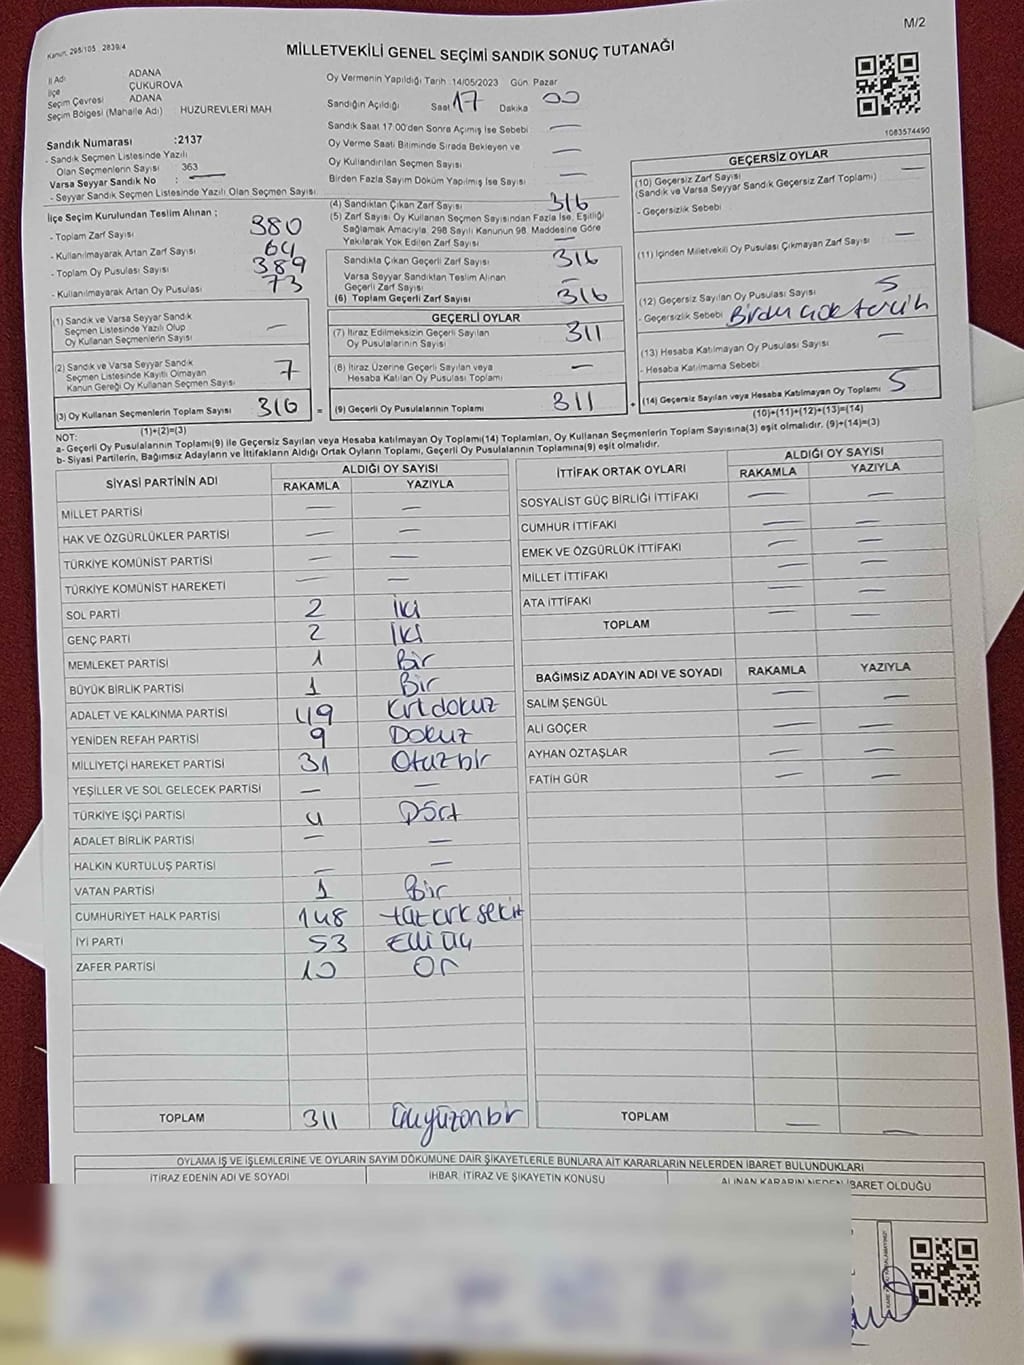 M/2
Kanun: 298/105 2839/4
MİLLETVEKİLİ GENEL SEÇİMİ SANDIK SONUÇ TUTANAĞI
İl Adı ADANA
İlçe ÇUKUROVA
Seçim Çevresi ADANA
Seçim Bölgesi (Mahalle Adı) HUZUREVLERİ MAH
Oy Vermenin Yapıldığı Tarih :14/05/2023 Gün: Pazar
Sandığın Açıldığı Saat 17 Dakika 00
Sandık Saat 17:00'den Sonra Açılmış İse Sebebi —
Oy Verme Saati Bitiminde Sırada Bekleyen ve
Oy Kullandırılan Seçmen Sayısı —
Birden Fazla Sayım Döküm Yapılmış İse Sayısı —
1083574490
Sandık Numarası :2137
- Sandık Seçmen Listesinde Yazılı
Olan Seçmenlerin Sayısı : 363
Varsa Seyyar Sandık No : —
- Seyyar Sandık Seçmen Listesinde Yazılı Olan Seçmen Sayısı:
İlçe Seçim Kurulundan Teslim Alınan ;
- Toplam Zarf Sayısı 380
- Kullanılmayarak Artan Zarf Sayısı 64
- Toplam Oy Pusulası Sayısı 389
- Kullanılmayarak Artan Oy Pusulası 73
(1) Sandık ve Varsa Seyyar Sandık
Seçmen Listesinde Yazılı Olup
Oy Kullanan Seçmenlerin Sayısı —
(2) Sandık ve Varsa Seyyar Sandık
Seçmen Listesinde Kayıtlı Olmayan
Kanun Gereği Oy Kullanan Seçmen Sayısı 7
(3) Oy Kullanan Seçmenlerin Toplam Sayısı 316
(1)+(2)=(3)
(4) Sandıktan Çıkan Zarf Sayısı 316
(5) Zarf Sayısı Oy Kullanan Seçmen Sayısından Fazla İse, Eşitliği
Sağlamak Amacıyla, 298 Sayılı Kanunun 98. Maddesine Göre
Yakılarak Yok Edilen Zarf Sayısı —
Sandıkta Çıkan Geçerli Zarf Sayısı 316
Varsa Seyyar Sandıktan Teslim Alınan
Geçerli Zarf Sayısı —
(6) Toplam Geçerli Zarf Sayısı 316
GEÇERLİ OYLAR
(7) İtiraz Edilmeksizin Geçerli Sayılan
Oy Pusulalarının Sayısı 311
(8) İtiraz Üzerine Geçerli Sayılan veya
Hesaba Katılan Oy Pusulası Toplamı —
= (9) Geçerli Oy Pusulalarının Toplamı 311 +
GEÇERSİZ OYLAR
(10) Geçersiz Zarf Sayısı
(Sandık ve Varsa Seyyar Sandık Geçersiz Zarf Toplamı) —
- Geçersizlik Sebebi
(11) İçinden Milletvekili Oy Pusulası Çıkmayan Zarf Sayısı —
(12) Geçersiz Sayılan Oy Pusulası Sayısı 5
- Geçersizlik Sebebi Birden çok tercih
(13) Hesaba Katılmayan Oy Pusulası Sayısı —
- Hesaba Katılmama Sebebi
(14) Geçersiz Sayılan veya Hesaba Katılmayan Oy Toplamı 5
(10)+(11)+(12)+(13)=(14)
NOT:
a- Geçerli Oy Pusulalarının Toplamı(9) ile Geçersiz Sayılan veya Hesaba katılmayan Oy Toplamı(14) Toplamları, Oy Kullanan Seçmenlerin Toplam Sayısına(3) eşit olmalıdır. (9)+(14)=(3)
b- Siyasi Partilerin, Bağımsız Adayların ve İttifakların Aldığı Ortak Oyların Toplamı, Geçerli Oy Pusulalarının Toplamına(9) eşit olmalıdır.
SİYASİ PARTİNİN ADI ALDIĞI OY SAYISI
RAKAMLA YAZIYLA
MİLLET PARTİSİ — —
HAK VE ÖZGÜRLÜKLER PARTİSİ — —
TÜRKİYE KOMÜNİST PARTİSİ — —
TÜRKİYE KOMÜNİST HAREKETİ — —
SOL PARTİ 2 iki
GENÇ PARTİ 2 iki
MEMLEKET PARTİSİ 1 Bir
BÜYÜK BİRLİK PARTİSİ 1 Bir
ADALET VE KALKINMA PARTİSİ 49 Kırkdokuz
YENİDEN REFAH PARTİSİ 9 Dokuz
MİLLİYETÇİ HAREKET PARTİSİ 31 Otuzbir
YEŞİLLER VE SOL GELECEK PARTİSİ — —
TÜRKİYE İŞÇİ PARTİSİ 4 Dört
ADALET BİRLİK PARTİSİ — —
HALKIN KURTULUŞ PARTİSİ — —
VATAN PARTİSİ 1 Bir
CUMHURİYET HALK PARTİSİ 148 yüzkırksekiz
İYİ PARTİ 53 Elliüç
ZAFER PARTİSİ 10 On
TOPLAM 311 Üçyüzonbir
İTTİFAK ORTAK OYLARI ALDIĞI OY SAYISI
RAKAMLA YAZIYLA
SOSYALİST GÜÇ BİRLİĞİ İTTİFAKI — —
CUMHUR İTTİFAKI — —
EMEK VE ÖZGÜRLÜK İTTİFAKI — —
MİLLET İTTİFAKI — —
ATA İTTİFAKI — —
TOPLAM — —
BAĞIMSIZ ADAYIN ADI VE SOYADI RAKAMLA YAZIYLA
SALİM ŞENGÜL — —
ALİ GÖÇER — —
AYHAN ÖZTAŞLAR — —
FATİH GÜR — —
TOPLAM — —
OYLAMA İŞ VE İŞLEMLERİNE VE OYLARIN SAYIM DÖKÜMÜNE DAİR ŞİKAYETLERLE BUNLARA AİT KARARLARIN NELERDEN İBARET BULUNDUKLARI
İTİRAZ EDENİN ADI VE SOYADI İHBAR, İTİRAZ VE ŞİKAYETİN KONUSU ALINAN KARARIN NEDEN İBARET OLDUĞU